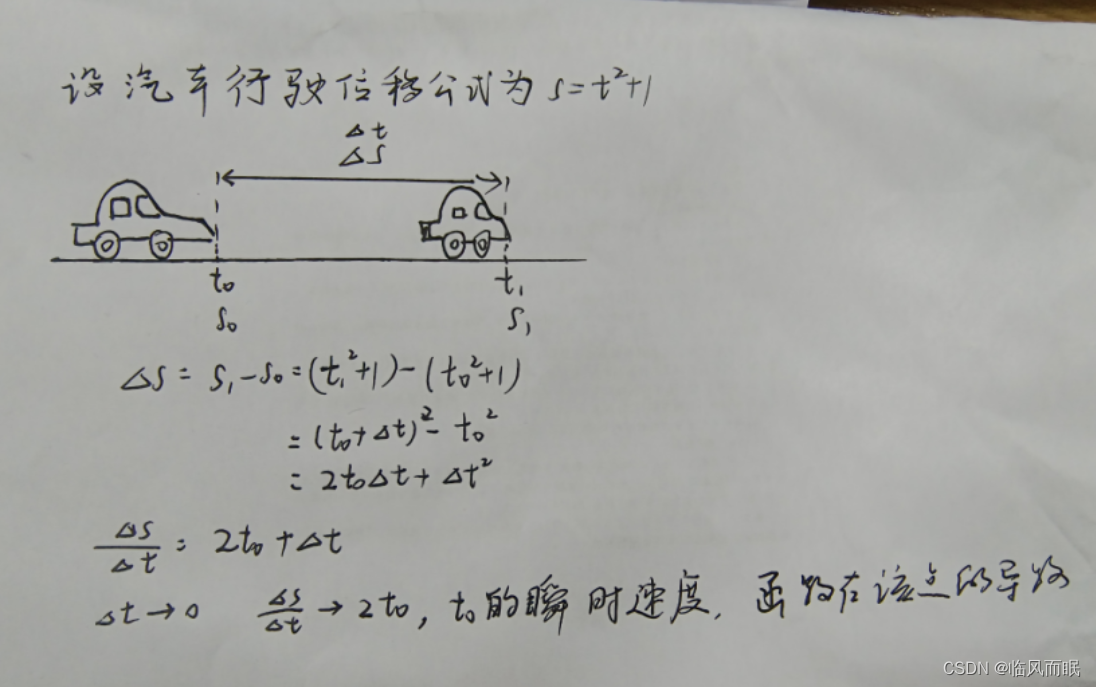 设汽车行驶位移公式为 s=t²+1
Δt
Δs
t₀
t₁
s₀
s₁
Δs = s₁-s₀=(t₁²+1)-(t₀²+1)
=(t₀+Δt)²-t₀²
= 2t₀Δt+Δt²
Δs/Δt = 2t₀+Δt
Δt→0 Δs/Δt→2t₀, t₀的瞬时速度, 函数在该点的导数
CSDN @临风而眠